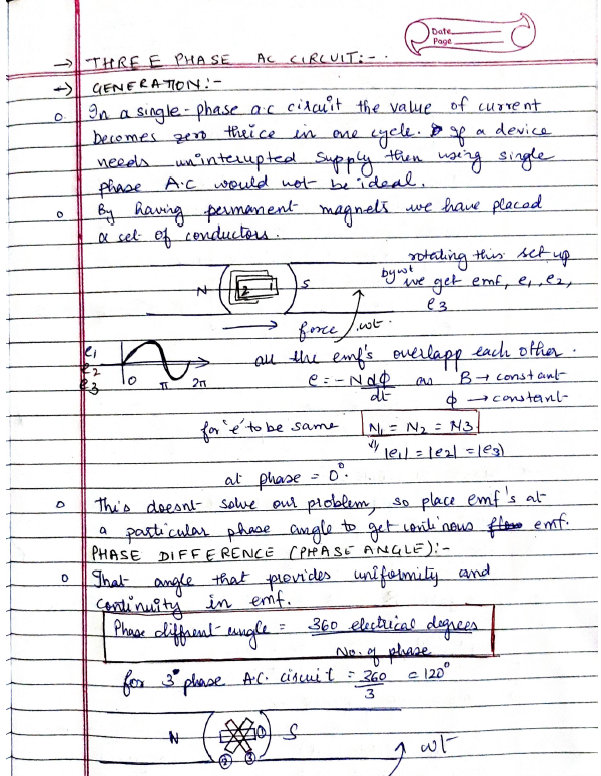 Date
Page
→ THREE PHASE AC CIRCUIT:-
→ GENERATION:-
o In a single-phase a.c circuit the value of current
becomes zero theice in one cycle. If a device
needs uninterupted supply then using single
phase A.C would not be ideal.
o By having permanent magnets we have placed
a set of conductors.
rotating this set up
by wt we get emf, e1, e2,
e3
N 2 1 S
→ force wt.
e1
e2
e3
0 π 2π
all the emf's overlapp each other.
e = -N dΦ/dt as B → constant
Φ → constant
for 'e' to be same N1 = N2 = N3
|e1| = |e2| = |e3|
at phase = 0°.
o This doesnt solve our problem, so place emf's at
a particular phase angle to get continous flow emf.
PHASE DIFFERENCE (PHASE ANGLE):-
o That angle that provides uniformity and
continuity in emf.
Phase diffrent-angle = 360 electrical degrees
No. of phase
for 3 phase A.C. circuit = 360/3 = 120°
N 1 S
2 3
wt